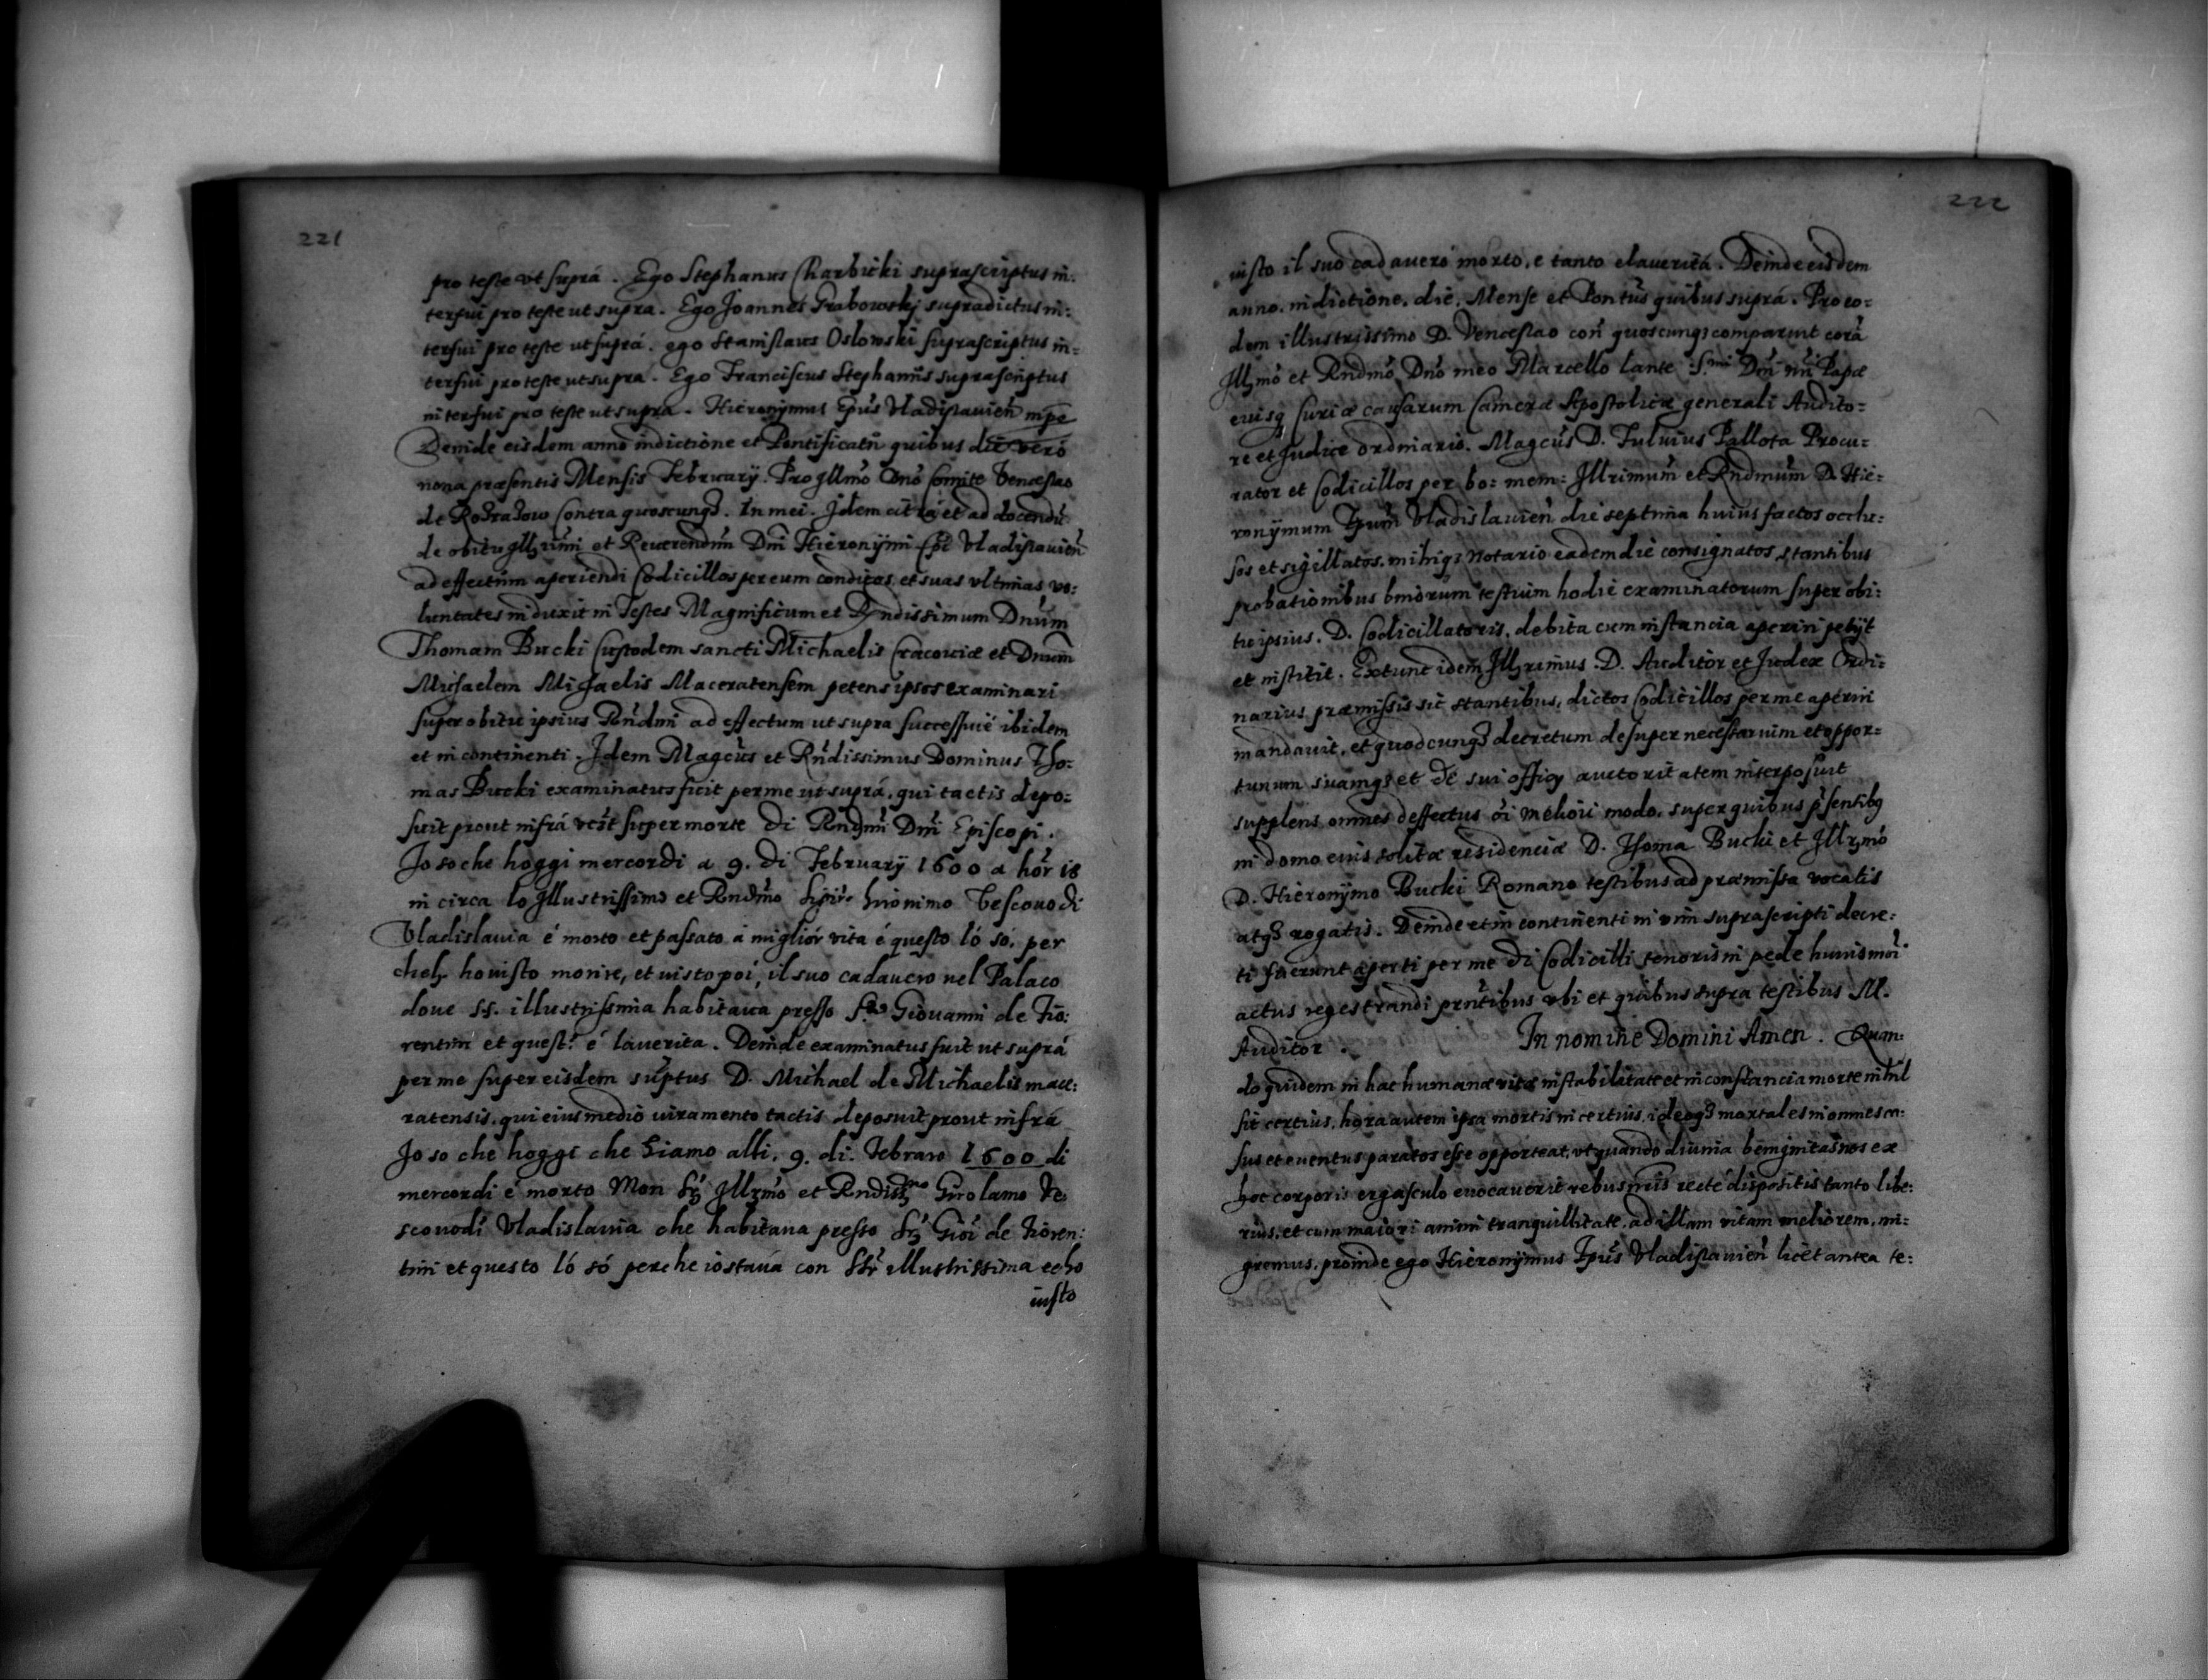 221
pro teste vt suprá. Ego Stephanus Charbicki suprascriptus in:
terfui pro teste ut supra. Ego Joannes Grabowskj supradictus in:
terfui pro teste ut suprá. ego Stanislaus Oslowski suprascriptus in=
terfui pro teste ut supra. Ego Franciscus Stephanus suprascriptus
interfui pro teste ut supra. Hieronymus Epus Vladislauien mpe
Deinde eisdem anno indictione et Pontificatu quibus die vero
nona præsentis Mensis February. Pro Jllmo Dno Comite Venceslao
de Rozrazow Contra quoscunq3. In mei. Jdem citra et ad docendu
de obitu Jllrimi et Reuerendmi Dni Hieronymi Epi Vladislauien
ad effectum aperiendi Codicillos per eum conditos et suas vltimas vo:
luntates induxit in Testes Magnificum et Rndissimum Dnum
Thomam Bucki Custodem sancti Michaelis Cracouiæ et Dnum
Michaelem Michaelis Maceratensem petens ipsos examinari
super obitu ipsius Rndmi ad effectum ut supra successiuè ibidem
et incontinenti. Jdem Magcus et Rndissimus Dominus Tho:
mas Bucki examinatus fuit per me ut suprá, qui tactis depo:
suit prout infrá vest super morte Di Rndmi Dni Episcopi.
Jo so che hoggi mercordi a 9. di February 1600 a hor 18
in circa lo Jllustrissimo et Rndmo hironimo Vescouo di
Vladislauia é morto et passato á miglior vita é questo ló só, per
che ho uisto morire, et uisto poi, il suo cadauero nel Palaco
doue ss. illustrissima habitaua presso Giouanni de Fio:
rentini et quest: é lauerita. Deinde examinatus fuit ut suprá
per me super eisdem suptus D. Michael de Michaelis mace:
ratensis, qui eius medio iuramento tactis deposuit prout infrá
Jo so che hogge che Siamo alli, 9. di. Febraro 1600 di
mercordi é morto Mon Sr Jllmo et Rndiss.mo Girolamo Ve
scouodi Vladislauia che habitana presso Sr Gioi de Fioren:
tini et questo ló só perche io staua con SSr illustrissima echo
uisto
222
uisto il suo cadauero morto, e tanto elaueritá. Deinde eisdem
anno, indictione, die, Mense et Pontus quibus suprá. Pro eo=
dem illustrissimo D. Venceslao con quoscunq3 comparuit corá
Jllmo et Rndmo Dno meo Marcello lante S.mi Dni nri Papæ
eiusq Curiæ causarum Cameræ Apostolicæ generali Audito=
re et Judice ordinario. Magcus D. Fuluius Pallota Procu=
rator et Codicillos per bo: mem: Jllrimum et Rndmum D. Hie:
ronymum Epum Vladislauien die septima huius factos occlu:
sos et sigillatos, mihiq3 Notario eadem die consignatos, stantibus
probationibus bmorum testium hodie examinatorum super obi:
tu ipsius. D. Codicillatoris, debita cum instancia aperiri petijt
et institit. Extunc idem Jllrimus. D. Auditor et Judex Ordi:
narius, præmissis sic stantibus, dictos Codicillos per me aperiri
mandauit, et quodcunq3 decretum desuper necessarium et oppor=
tunum suamq3 et Dc sui officy auctoritatem interposuit
supplens omnes deffectus oi meliori modo. super quibus psentibq
in domo eius solitæ residenciæ D. Thoma Bucki et Jllrmo
D. Hieronymo Bucki Romano testibus ad præmissa vocatis
atq3 rogatis. Deinde et in continenti in vim suprascripti decre:
ti fuerunt aperti per me Di Codicilli tenoris in pede huiusmoi
actus regestrandi pntibus vbi et quibus supra testibus M.
Auditor. In nomine Domini Amen. Quan:
do quidem in hac humanæ vitæ instabilitate et inconstancia morte nihil
sit certius, hora autem ipsa mortis incertius, ideoq3 mortales in omnes ca:
sus et euentus paratos esse opporteat, vt quando diuina benignitas nos ex
hoc corporis ergasculo euocauerit rebus nris recté dispositis tanto libe:
rius, et cum maiori animi tranquillitate, ad illam vitam meliorem, mi=
gremus, proinde ego Hieronymus Epus Vladislauien licet antea te: